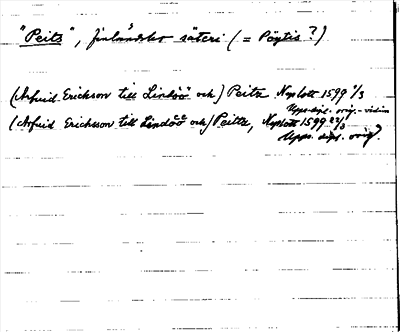 "Peitz", finländsk säteri (= Pöytis?)
(Arfuid Erichson till Lindöö och) Peitz Nyslott 1599 1/3
Upps. dipl. orig. - vidim
(Arfuid Erichsson till Lindöö och) Peittz, Nyslott 1599 22/3
Upps. dipl. orig.